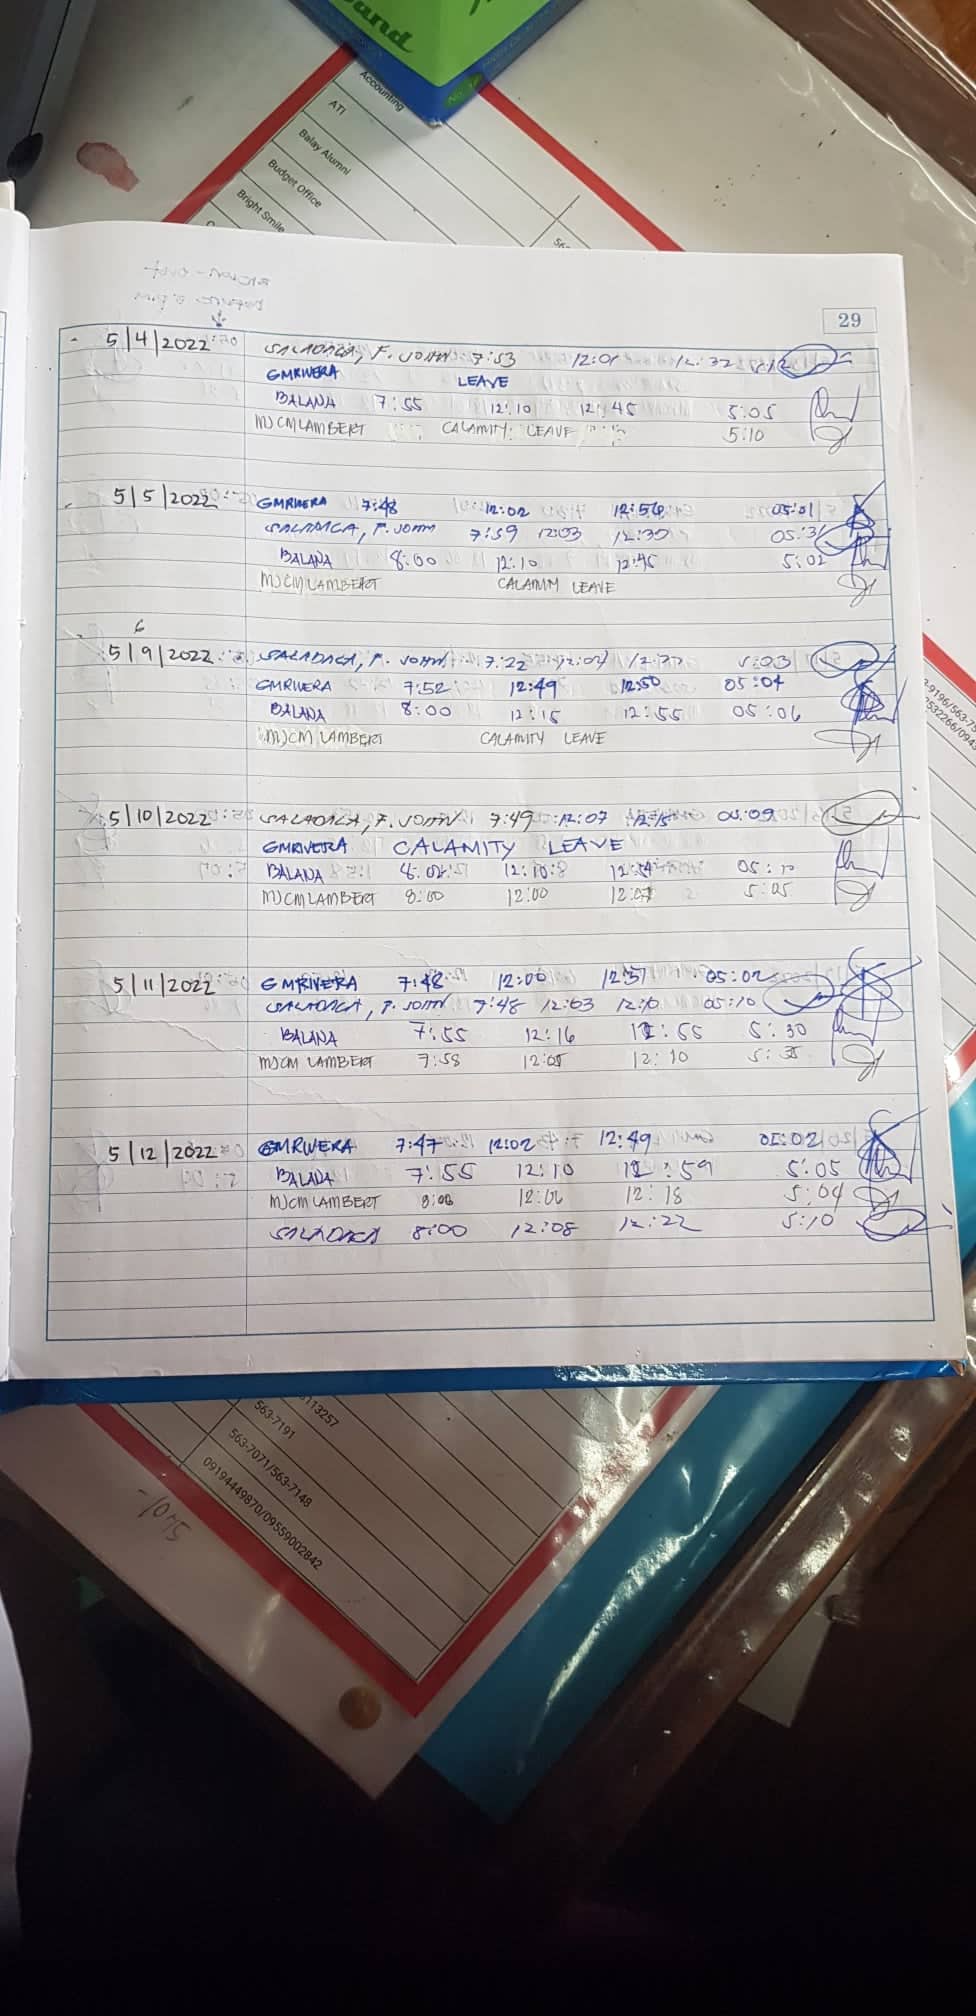 and
No.
Accounting
ATI
Balay Alumni
Budget Office
Bright Smile
29
5/4/2022 SALADAGA, F. JOHN 7:53 12:01 12:32
GMRIVERA LEAVE
BALANA 7:55 12:10 12:45 5:05
MJCMLAMBERT CALAMITY LEAVE 5:10
5/5/2022 GMRIVERA 7:48 12:02 12:56 05:01
SALADAGA, F. JOHN 7:59 12:03 12:30 05:31
BALANA 8:00 12:10 12:45 5:02
MJCMLAMBERT CALAMITY LEAVE
6
5/9/2022 SALADAGA, F. JOHN 7:22 12:02 5:03
GMRIVERA 7:52 12:49 12:50 05:04
BALANA 8:00 12:15 12:55 05:06
MJCM LAMBERT CALAMITY LEAVE
5/10/2022 SALADAGA, F. JOHN 7:49 12:07 12:15 05:09
GMRIVERA CALAMITY LEAVE
BALANA 8:02 12:10 12:54 05:10
MJCMLAMBERT 8:00 12:00 5:05
5/11/2022 GMRIVERA 7:48 12:00 12:51 05:02
SALADAGA, F. JOHN 7:48 12:03 05:10
BALANA 7:55 12:16 12:55 5:30
MJCM LAMBERT 7:58 12:05 12:10 5:35
5/12/2022 GMRIVERA 7:47 12:02 12:49 05:02
BALANA 7:55 12:10 12:59 5:05
MJCMLAMBERT 8:00 12:06 12:18 5:04
SALADAGA 8:00 12:08 12:22 5:10
113257
563-7191
563-7071/563-7148
09194449870/09559002842